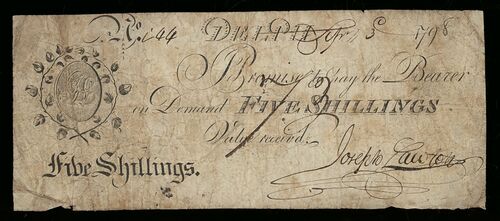 No. 144 DELPH Apr. 5 1798
I Promise to pay the Bearer
on Demand FIVE SHILLINGS
Value received.
Five Shillings. Joseph Lawton